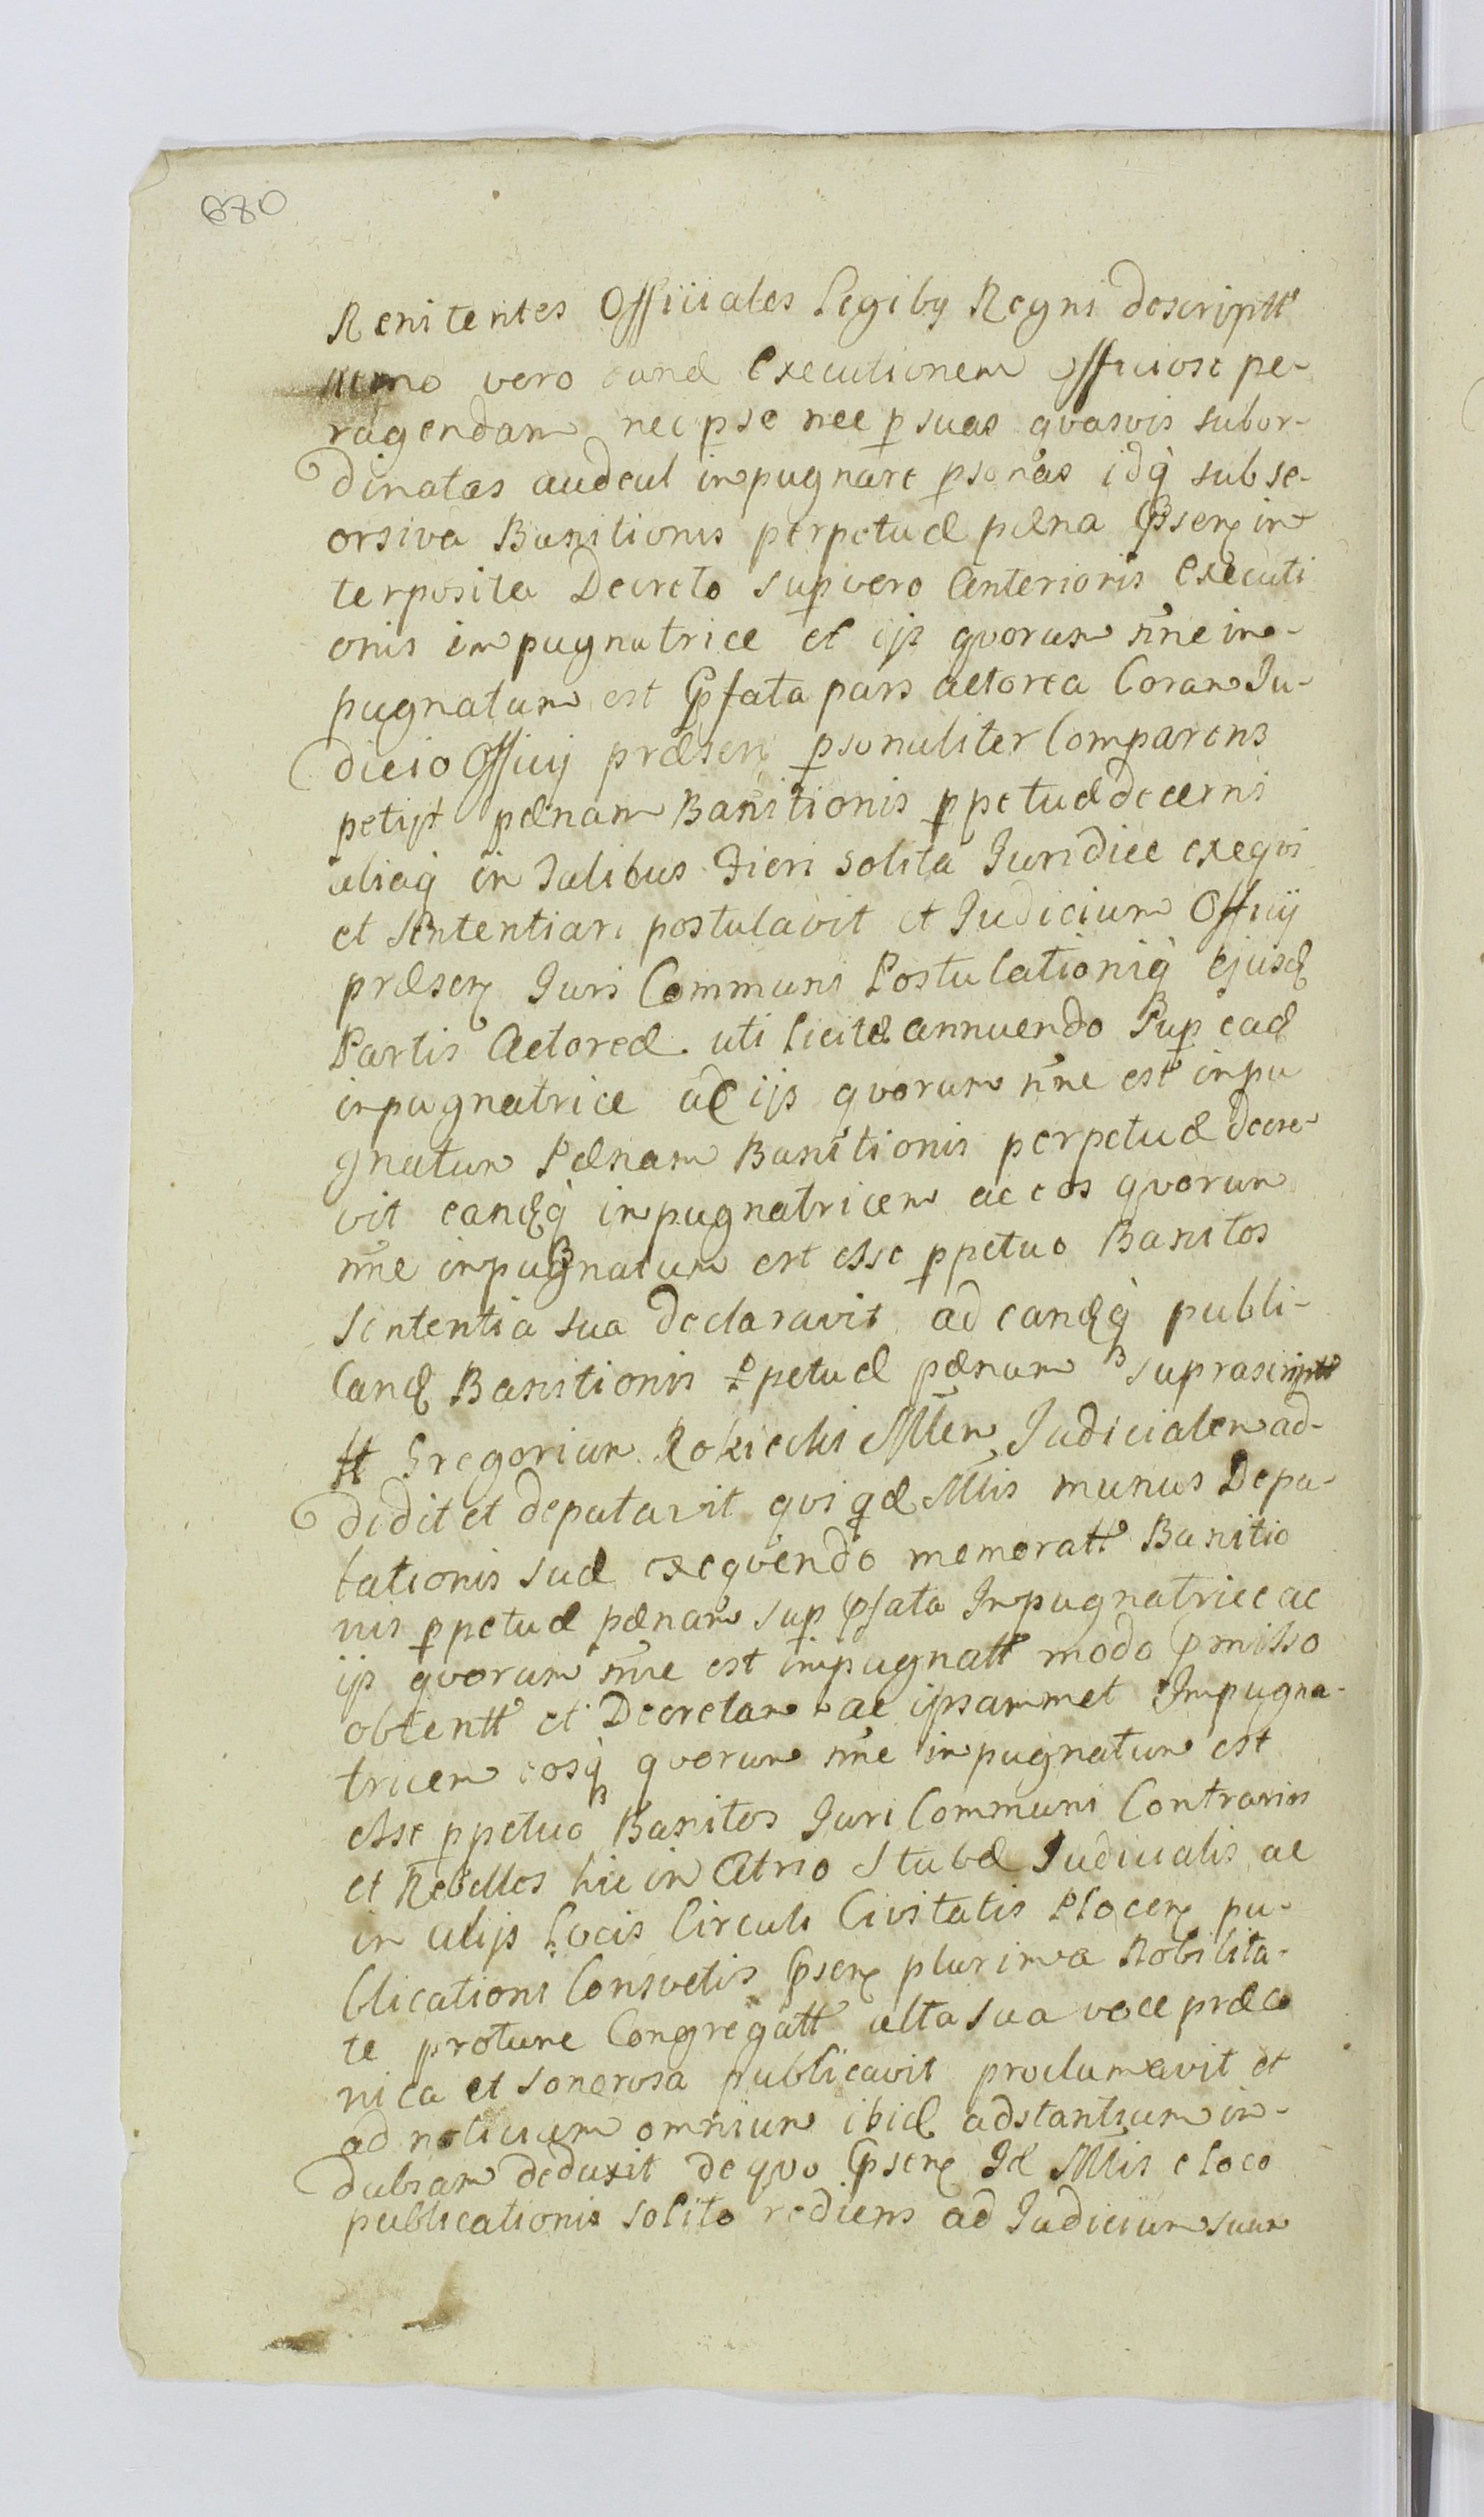 680
Renitentes Officiales Legibq Regni descriptt
nemo vero eand Executionem officiose pe-
ragendam nec pse nec psuas qvasvis subor-
dinatas audeat inpugnare psonas idq sub se-
orsiva Banitionis perpetuæ pæna Pnsen in
terposita Decreto sup vero Anterioris Executi
onis impugnatrice et ijs qvorum nne in-
pugnatum est Pfata pars actorea Coram Ju-
dicio Officij præsen psonaliter Comparens
petijt pænam Banitionis ppetuæ decerni
aliaq in Talibus Fieri solita Juridice exeqvi
et sententiari postulavit et Judicium Officij
præsen Juri Communi Postulationiq ejusd
Partis Actoreæ uti licitæ annuendo Sup ead
inpugnatrice ac ijs qvorum nne est inpu
gnatum Pænam Banitionis perpetuæ decre
vit eandq inpugnatricem ac eos qvorum
nne inpugnatum est esse ppetuo Banitos
Sententia sua declaravit ad eandq publi-
cand Banitionis ppetuæ pænam suprascriptt
tt Gregorium Rokicki Mlem Judicialem ad-
didit et deputavit qvi qd Mlis munus Depu-
tationis suæ exeqvendo memoratt Banitio
nis ppetuæ pænam sup Pfata Inpugnatrice ac
ijs qvorum nne est impugnatt modo Pmisso
obtentt et Decretam ac ipsammet Impugna-
tricem eosq qvorum nne inpugnatum est
esse ppetuo Banitos Juri Communi Contrarios
et Rebelles hic in Atrio Stubæ Judicialis ac
in alijs Locis Circuli Civitatis Plocen pu-
blicationi Consvetis Pnsen plurima Nobilita-
te protunc Congregatt alta sua voce præco
nica et sonorosa publicavit proclamavit et
ad noticiam omnium ibid adstantium in-
dubiam deduxit de qvo Pnsen Id Mlis e loco
publicationis solito rediens ad Judicium suum